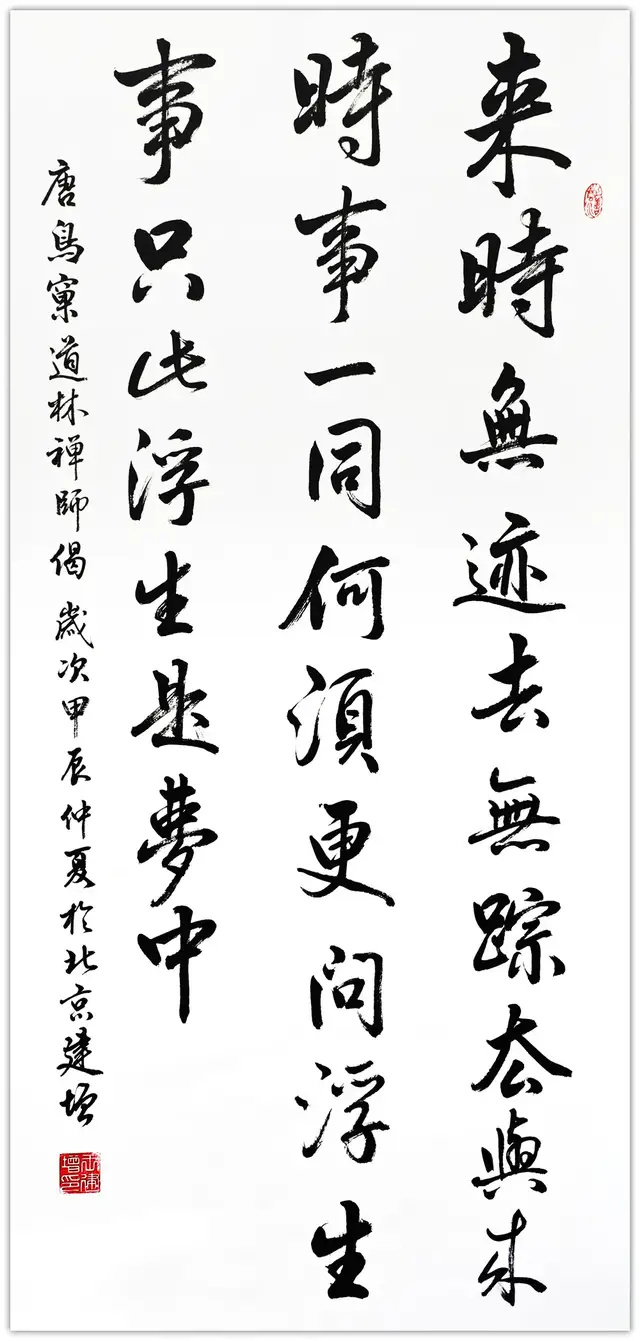 来時無迹去無踪去與来
時事一同何須更問浮生
事只此浮生是夢中
唐鳥窠道林禅師偈 歲次甲辰仲夏於北京建增